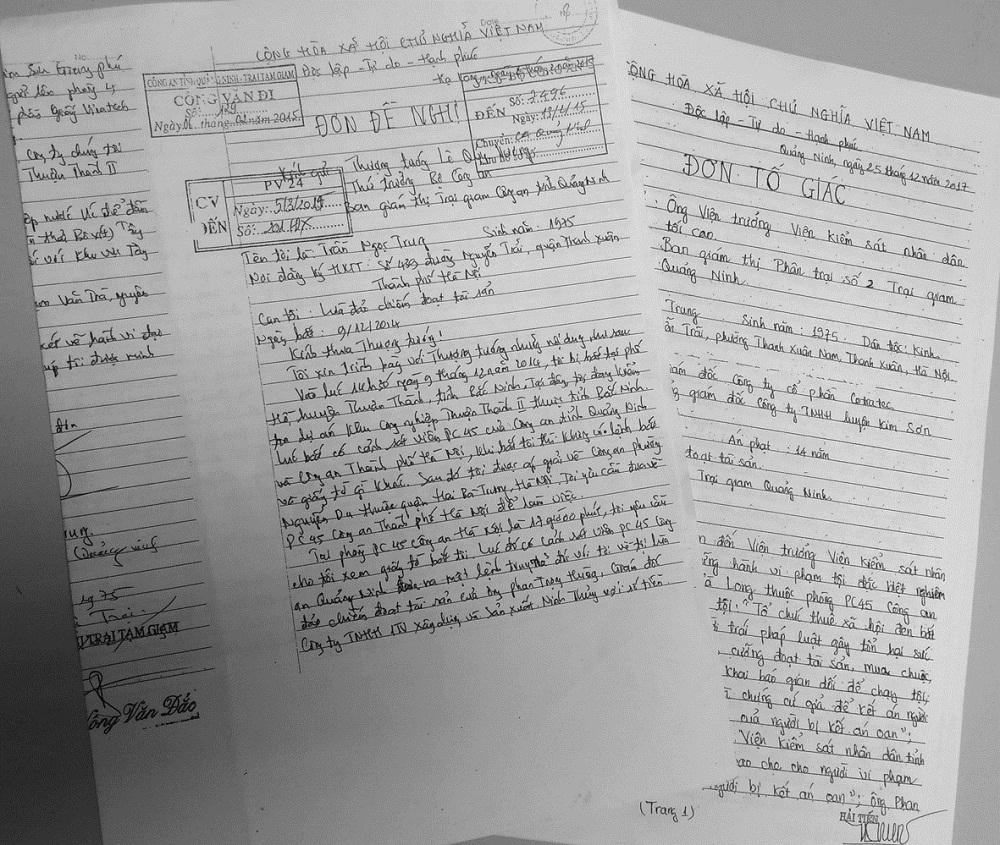 CỘNG HÒA XÃ HỘI CHỦ NGHĨA VIỆT NAM
Độc lập - Tự do - Hạnh phúc
CÔNG AN TỈNH QUẢNG NINH - TRẠI TẠM GIAM
CÔNG VĂN ĐI
Số: 129
Ngày 06 tháng 02 năm 2015
ĐƠN ĐỀ NGHỊ
ĐẾN
Số: 2496
Ngày: 13/2/15
Chuyển: CA Quảng Ninh
Kính gửi
Thượng tướng Lê Q
Thứ trưởng Bộ Công an
Ban giám thị Trại giam Công an tỉnh Quảng Ninh
PV 24
CV ĐẾN
Ngày: 5/3/2015
Số:
Tên tôi là: Trần Ngọc Trung Sinh năm: 1975
Nơi đăng ký HKTT: Số 439 đường Nguyễn Trãi, quận Thanh Xuân
Thành phố Hà Nội
Can tội: Lừa đảo chiếm đoạt tài sản
Ngày bắt: 9/12/2014
Kính thưa Thượng tướng!
Tôi xin trình bày với Thượng tướng những nội dung như sau
Vào lúc 11h30 ngày 9 tháng 12 năm 2014, tôi bị bắt tại phố
Hồ, huyện Thuận Thành, tỉnh Bắc Ninh. Tại đây tôi đang kiểm
tra dự án Khu Công nghiệp Thuận Thành II thuộc tỉnh Bắc Ninh.
Lúc bắt có cảnh sát viên PC45 của Công an tỉnh Quảng Ninh
và Công an Thành phố Hà Nội, khi bắt tôi thì không có lệnh bắt
và giấy tờ gì khác. Sau đó tôi được áp giải về Công an phường
Nguyễn Du thuộc quận Hai Bà Trưng, Hà Nội. Tôi yêu cầu đưa về
PC45 Công an Thành phố Hà Nội để làm việc.
Tại phòng PC45 Công an Hà Nội là 17 giờ 00 phút, tôi yêu cầu
cho tôi xem giấy tờ bắt tôi. Lúc đó có cảnh sát viên PC45 Công
an Quảng Ninh đưa ra một lệnh truy nã đối với tôi về tội lừa
đảo chiếm đoạt tài sản của ông Phan Trọng Hùng, Giám đốc
Công ty TNHH 1TV Xây dựng và Sản xuất Ninh Thủy với số tiền
(Trang 1)
phòng 4
Công ty chúng tôi
Thuận Thành II
nước
Khu
Văn Trà, huyện
về hành vi
tôi được minh
Quảng Ninh
1975
Trãi
TRẠI TẠM GIAM
Nông Văn Đắc
CỘNG HÒA XÃ HỘI CHỦ NGHĨA VIỆT NAM
Độc lập - Tự do - Hạnh phúc
Quảng Ninh, ngày 25 tháng 12 năm 2017
ĐƠN TỐ GIÁC
Ông Viện trưởng Viện kiểm sát nhân dân
tối cao
Ban giám thị Phân trại số 2 Trại giam
Quảng Ninh.
Trung Sinh năm: 1975. Dân tộc: Kinh
Trãi, phường Thanh Xuân Nam, Thanh Xuân, Hà Nội
giám đốc Công ty cổ phần Cotratec
giám đốc Công ty TNHH luyện Kim Sơn
Án phạt: 14 năm
đoạt tài sản.
Trại giam Quảng Ninh
đối Viện trưởng Viện kiểm sát nhân
hành vi phạm tội đặc biệt nghiêm
Long thuộc phòng PC45 Công an
tội: "Tổ chức thuê xã hội đen bắt
trái pháp luật gây tổn hại sức
cưỡng đoạt tài sản, mua chuộc,
khai báo gian dối để chạy tội;
chứng cứ giả để kết án người
của người bị kết án oan";
Viện kiểm sát nhân dân tỉnh
bao che cho người vi phạm
người bị kết án oan"; ông Phan
HẢI TIẾN